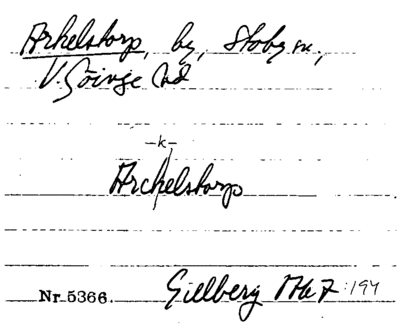 Arkelstorp, by, Stoby sn,
V. Göinge hd
-k-
Archelstorp
Nr. 5366. Gillberg 1767 :194